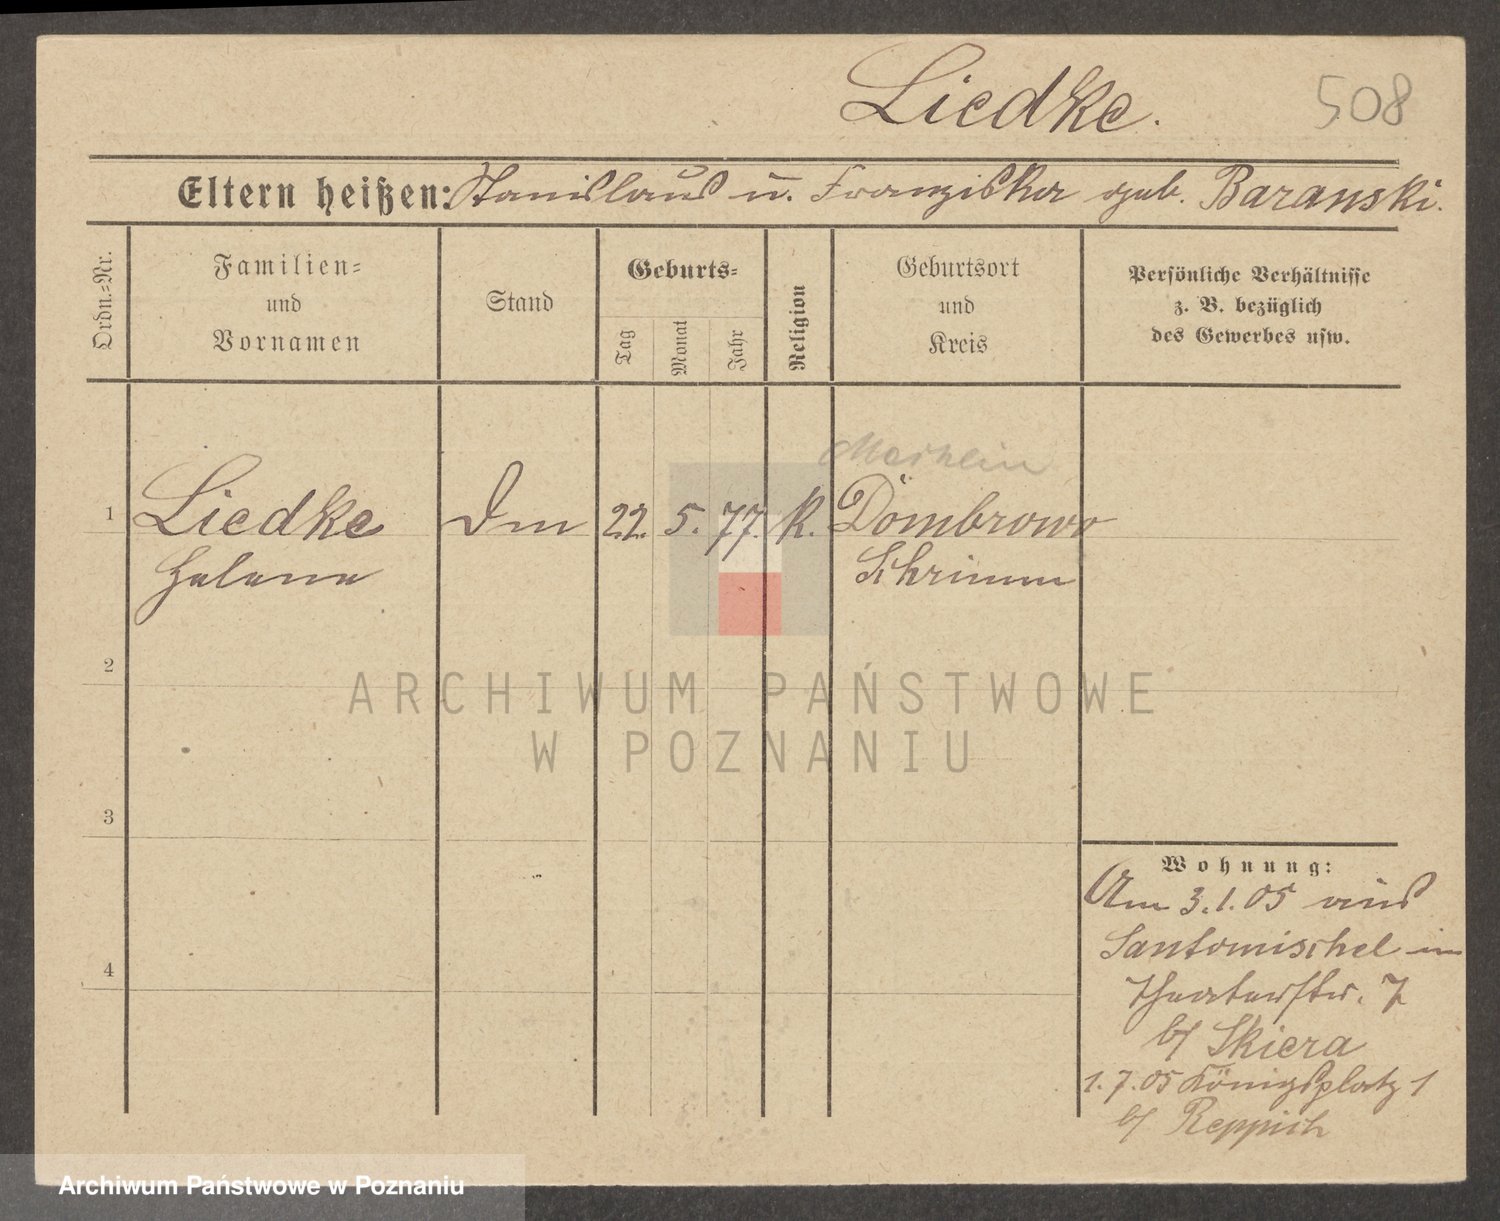 Liedke.
508
Eltern heißen: Stanislaus u. Franziska geb. Baranski.
Ordn.-Nr.
Familien-
und
Vornamen
Stand
Geburts-
Tag
Monat
Jahr
Religion
Geburtsort
und
Kreis
Persönliche Verhältnisse
z. B. bezüglich
des Gewerbes usw.
1
Liedke Dm 22. 5. 77. K. Dombrowo
Helene Schrimm
2
ARCHIWUM PAŃSTWOWE
W POZNANIU
3
4
Wohnung:
Am 3.1.05 aus
Santomischel in
Theaterstr. 7
b/ Skiera
1.7.05 Königsplatz 1
b/ Reppich
Archiwum Państwowe w Poznaniu